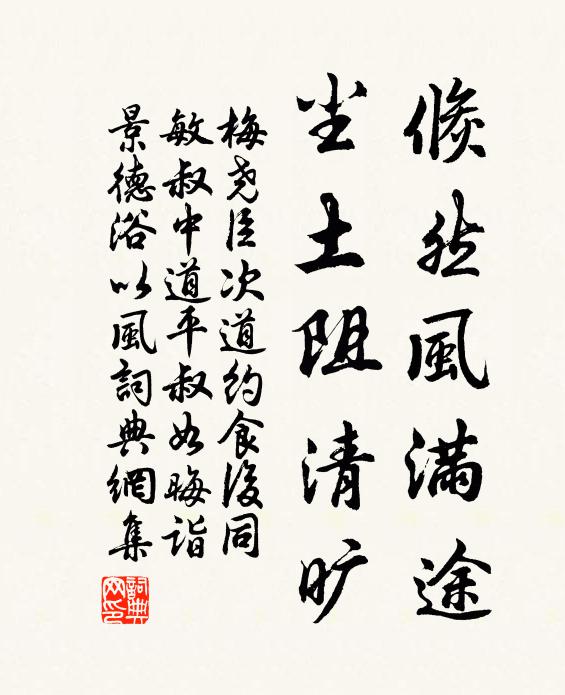 倏然風滿途
坐土阻清曠
梅堯臣次道約食後同
敏叔中道平叔如晦詣
景德浴以風詞典網集
詞典網印